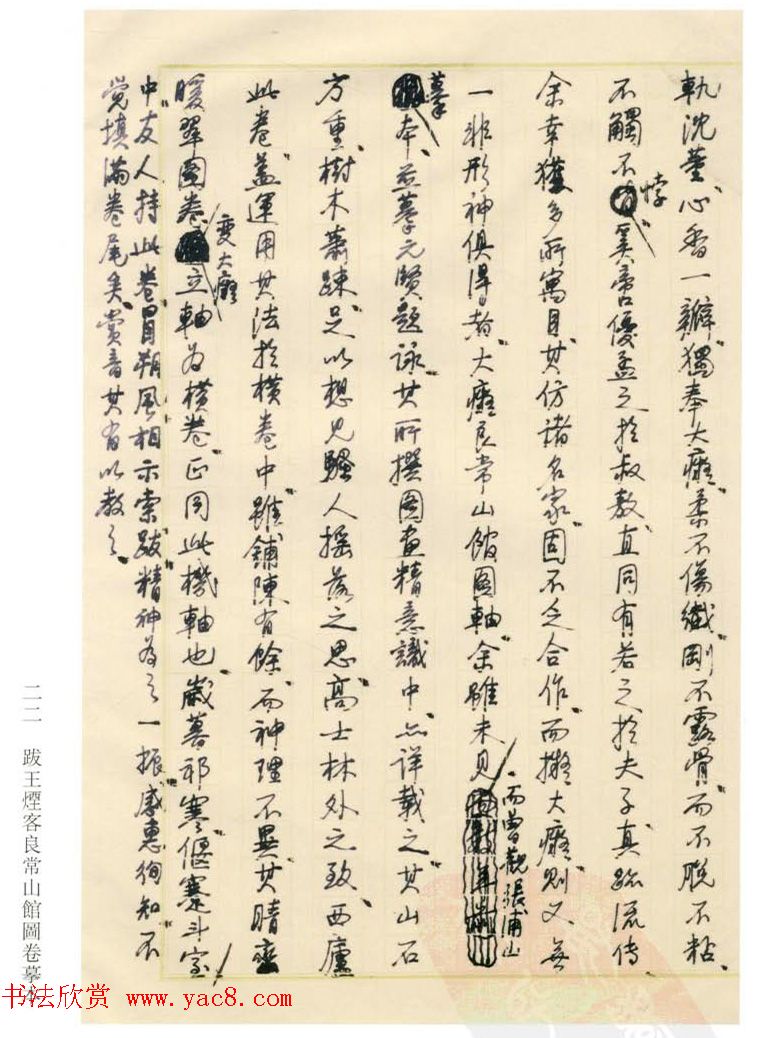 軌沈董心香一瓣獨奉大癡柔不傷纖剛不露骨而不脫不粘
不觸不悖奚啻優孟之於叔敖直同有若之於夫子真跡流傳
余幸獲多所寓目其仿諸名家固不乏合作而擬大癡則又無
一非形神俱得者大癡良常山館圖軸余雖未見而曾觀張浦山
摹本並摹元賢題詠其所撰圖畫精意識中亦詳載之其山石
方重樹木蕭疎足以想見騷人搖落之思高士林外之致西廬
此卷蓋運用其法於橫卷中雖鋪陳有餘而神理不異其晴嵐
暖翠圖卷變大癡立軸為橫卷正同此機軸也歲暮祁寒偃蹇斗室
中友人持此卷冒朔風相示索跋精神為之一振感惠徇知不
覺填滿卷尾矣賞音其有以教之
二二 跋王煙客良常山館圖卷摹本
书法欣赏 www.yac8.com